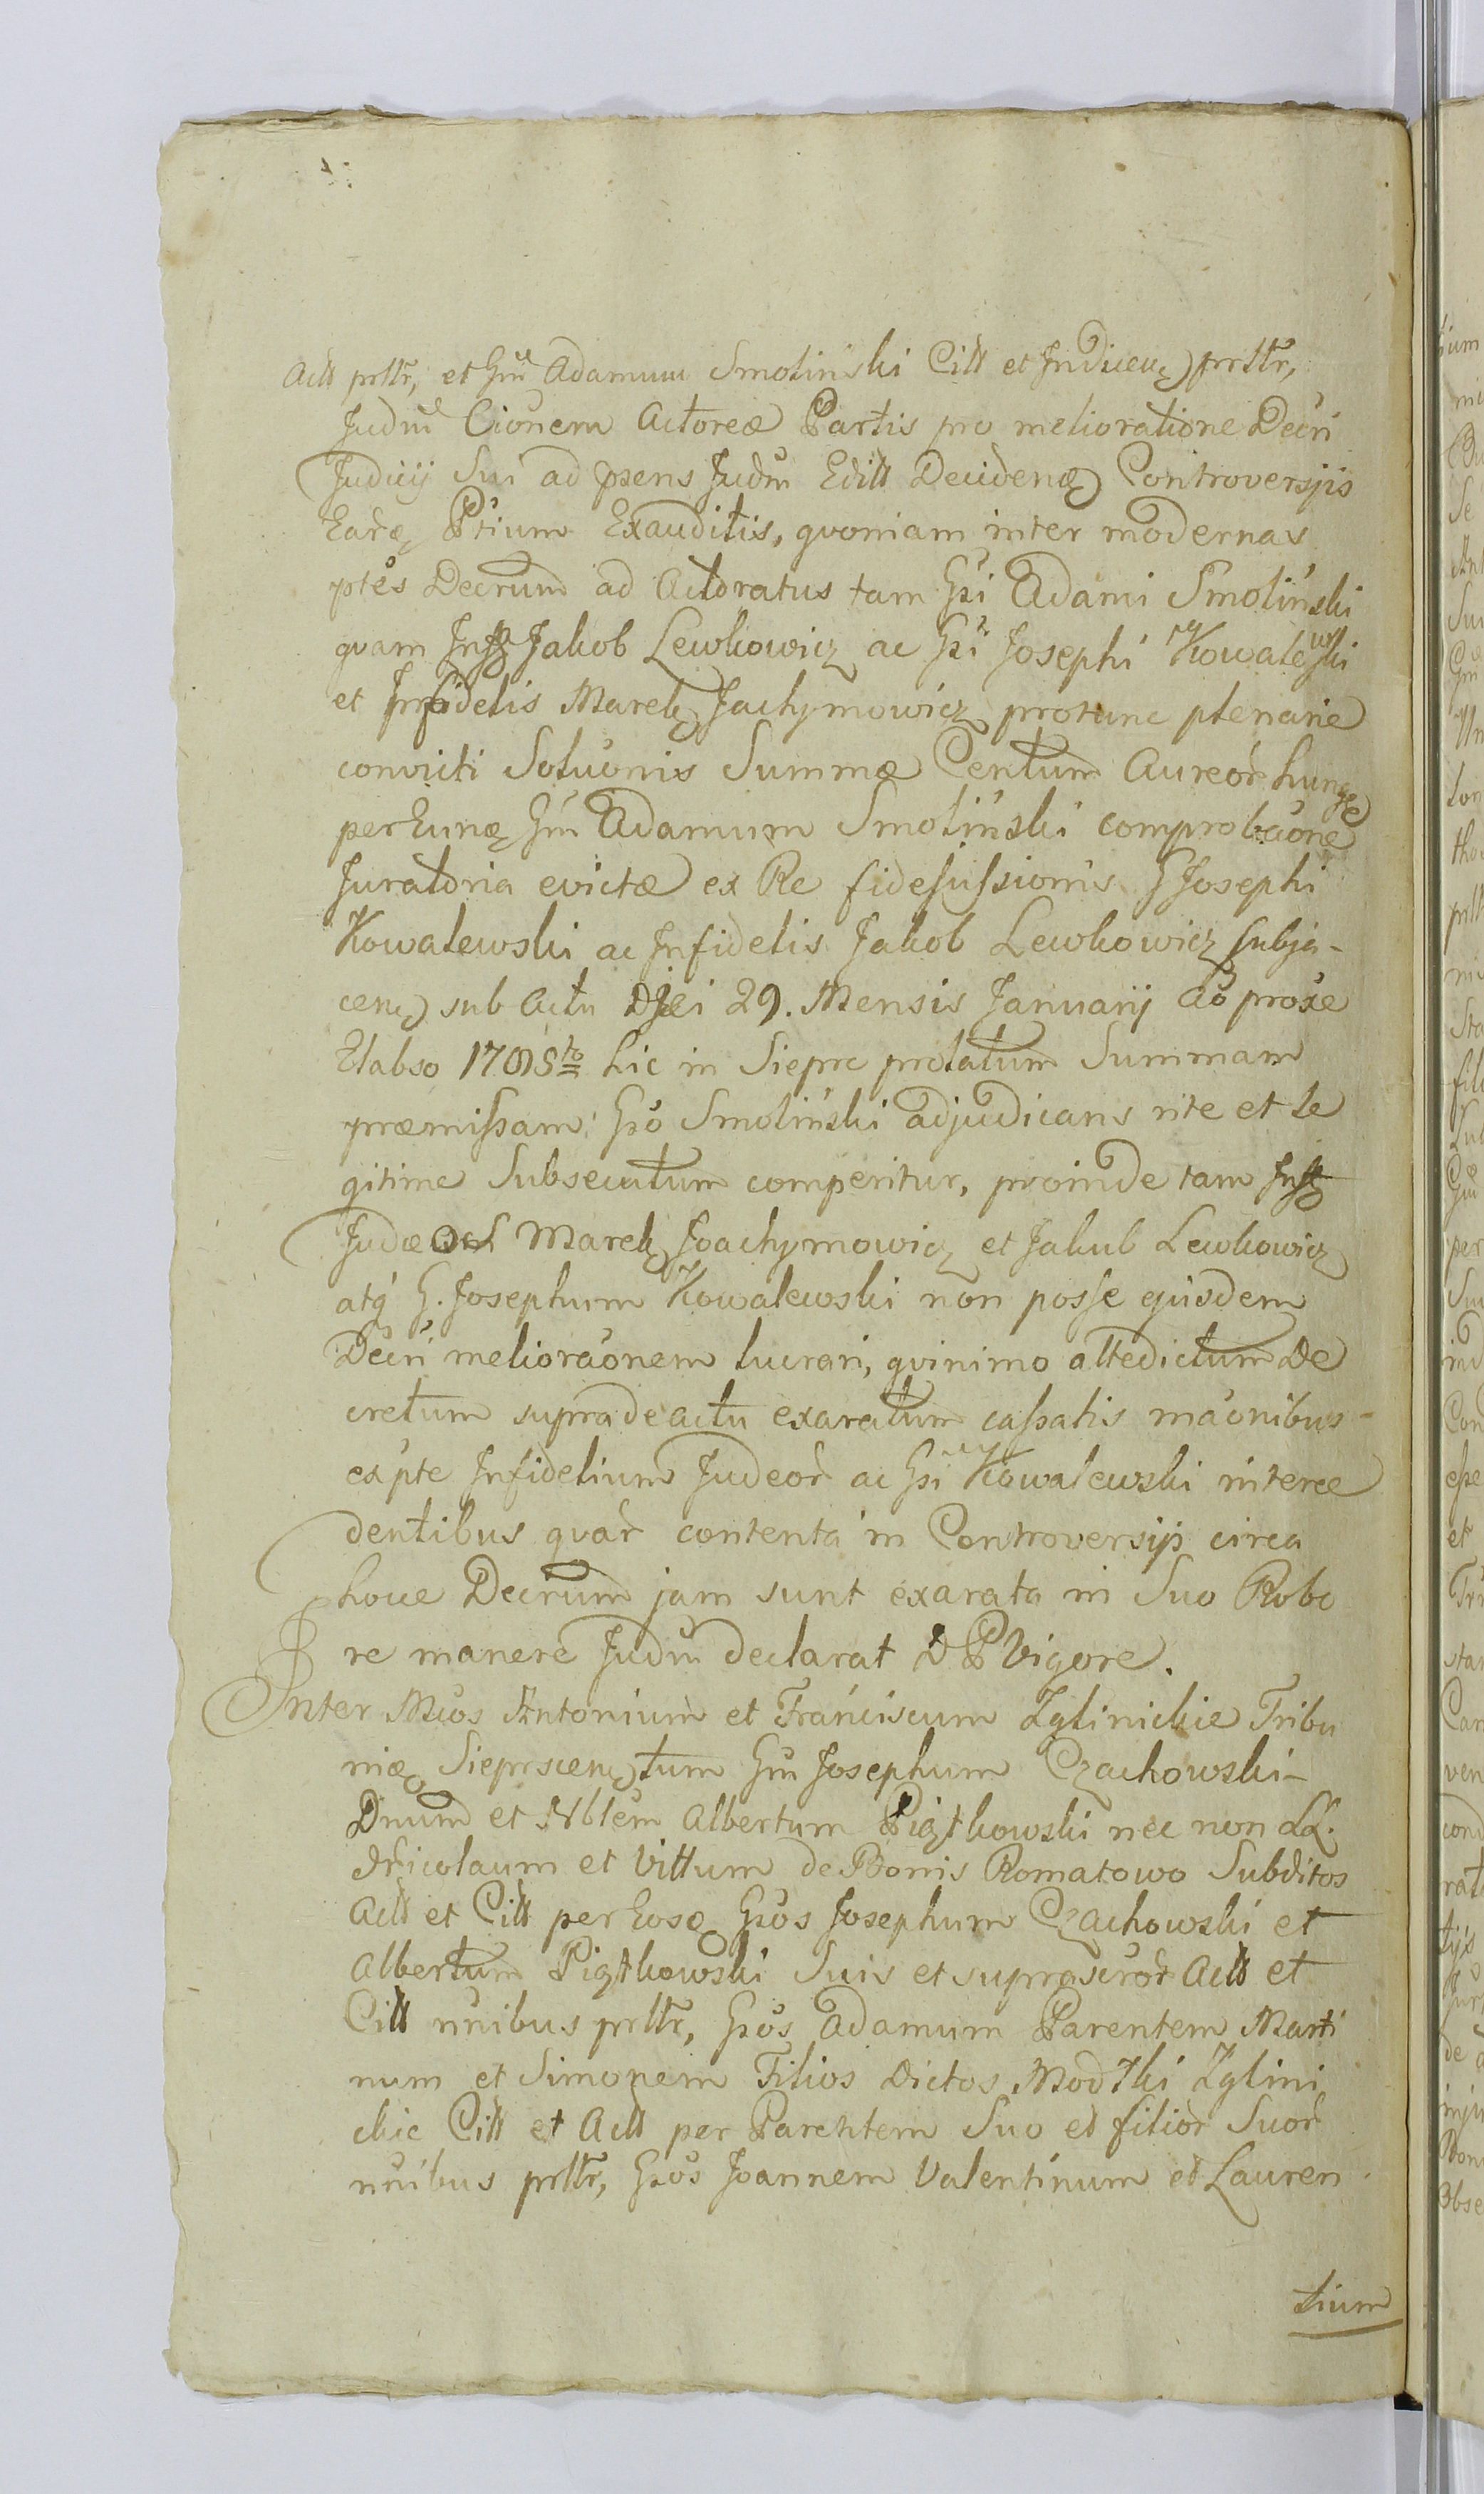 Actt prttr, et Gm Adamum Smolinski Citt et Judicem prttr,
Judm Cionem Actoreæ Partis pro melioratione Decri
Judicij Sui ad psens Judm Editt Decidenq Controversiis
Earq Ptium Exauditis, qvoniam inter modernas
ptes Decrum ad Actoratus tam Gsi Adami Smoliński
qvam Inff Jakob Lewkowicz ac Gsi Josephi Kowalewski
et Infidelis Marek Jachymowicz protunc plenarie
convicti Soluonis Summæ Centum Aureor hung
per Eunq Gm Adamum Smoliński comprobaone
Juratoria evictæ ex Re fidejussionis G Josephi
Kowalewski ac Infidelis Jakob Lewkowicz subja-
cen sub Actu Diei 29. Mensis Januarij Ao proxe
Elabso 1765to hic in Sieprc prolatum Summam
præmissam Gso Smoliński adjudicans rite et le
gitime Subsecutum comperitur, proinde tam Inff
Judæos Marek Joachymowicz et Jakub Lewkowicz
atq G. Josephum Kowalewski non posse ejusdem
Decri melioraonem lucrari, qvinimo attedictum De
cretum supra de actu exaratum cassatis maonibus
ex pte Infidelium Judeor ac Gsi Kowalewski interce
dentibus qvar contenta in Controversijs circa
hocce Decrum jam sunt exarata in Suo Robo
re manere Judm declarat D P Vigore.
Inter Mcos Antonium et Franciscum Zglinickie Tribu
niq Sieprscen tum Gm Josephum Czachowski
Dnum et Nblem Albertum Piątkowski nec non LL.
Nicolaum et Vittum de Bonis Romatowo Subditos
Actt et Citt per Eosq Gsos Josephum Czachowski et
Albertum Piątkowski Suis et suprascror Actt et
Citt nnibus prttr, Gsos Adamum Parentem Marti
num et Simonem Filios Dictos Modtki Zglini
ckie Citt et Actt per Parentem Suo et filior Suor
nnibus prttr, Gsos Joannem Valentinum et Lauren
tium